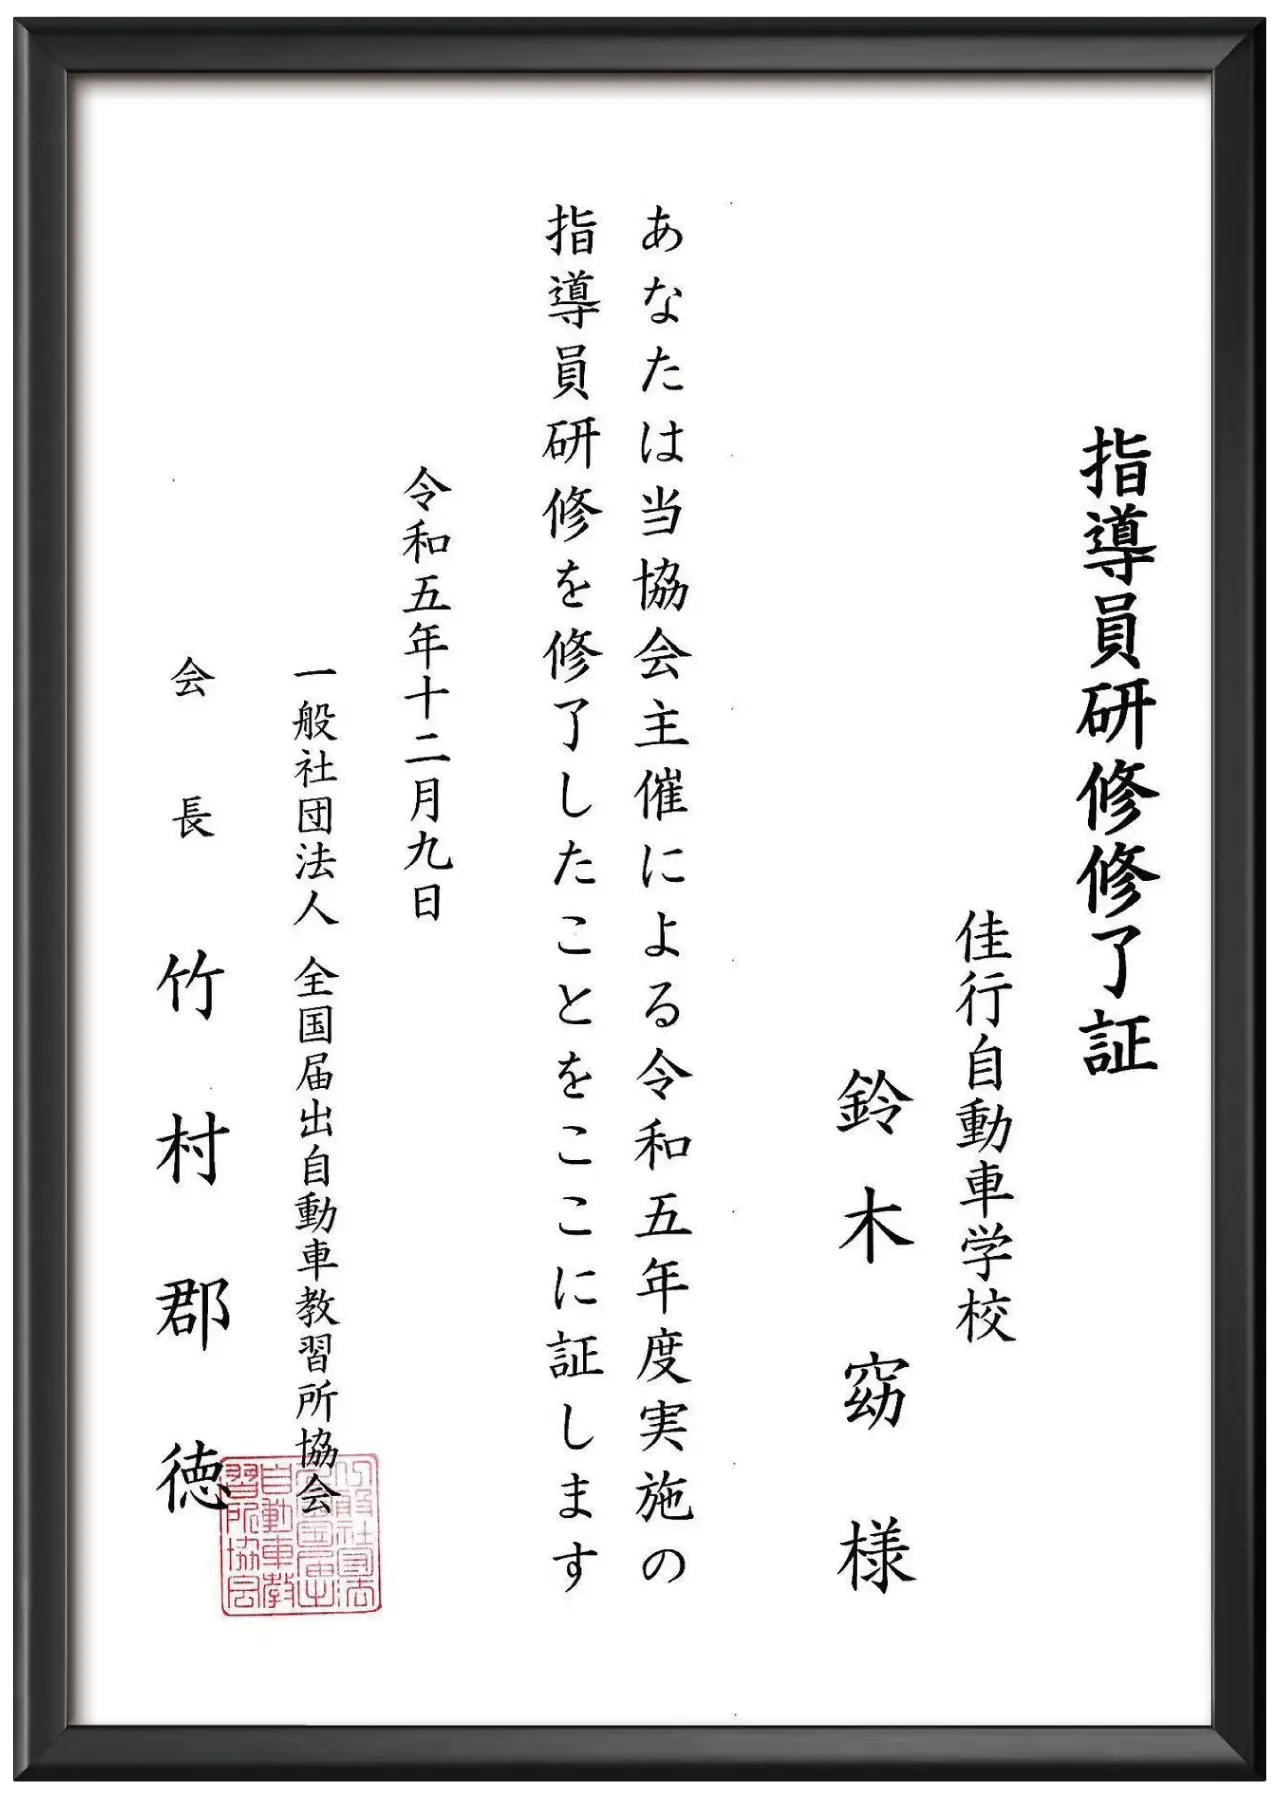 指導員研修修了証
佳行自動車学校
鈴木窈様
あなたは当協会主催による令和五年度実施の
指導員研修を修了したことをここに証します
令和五年十二月九日
一般社団法人 全国届出自動車教習所協会
会長 竹村郡徳
一般社団法
人全国届出
自動車教
習所協会